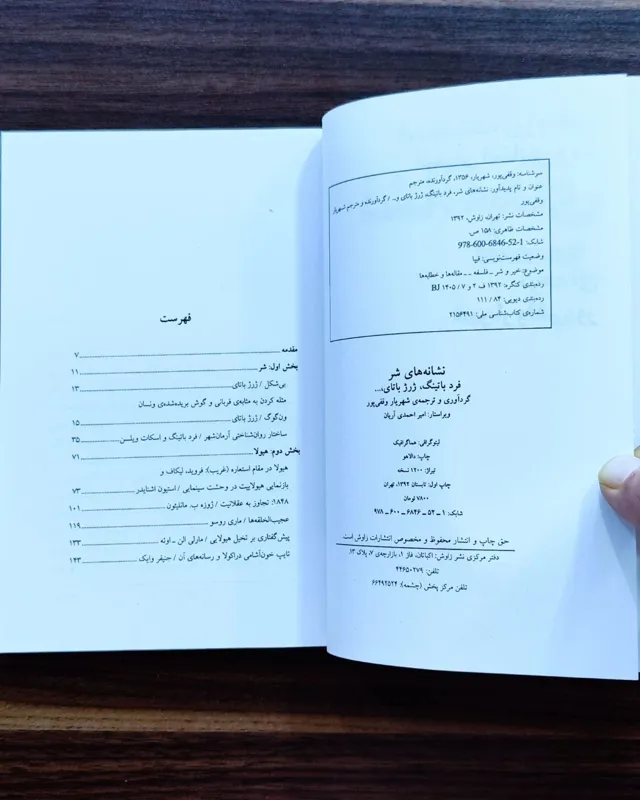 سرشناسه: وقفی‌پور، شهریار، ۱۳۵۶، گردآورنده، مترجم
عنوان و نام پدیدآور: نشانه‌های شر، فرد باتینگ، ژرژ باتای و... / گردآورنده و مترجم شهریار
وقفی‌پور
مشخصات نشر: تهران، زاوش، ۱۳۹۲
مشخصات ظاهری: ۱۵۸ ص.
شابک: 978-600-6846-52-1
وضعیت فهرست‌نویسی: فیپا
موضوع: خیر و شر ـ فلسفه ـ ـ مقاله‌ها و خطابه‌ها
رده‌بندی کنگره: ۱۳۹۲ ف ۲ و ۷ / BJ ۱۴۰۵
رده‌بندی دیویی: ۸۴ / ۱۱۱
شماره‌ی کتاب‌شناسی ملی: ۲۱۵۶۴۹۱
نشانه‌های شر
فرد باتینگ، ژرژ باتای،...
گردآوری و ترجمه‌ی شهریار وقفی‌پور
ویراستار: امیر احمدی آریان
لیتوگرافی: هماگرافیک
چاپ: دالاهو
تیراژ: ۱۲۰۰ نسخه
چاپ اول: تابستان ۱۳۹۲، تهران
۷۸۰۰ تومان
شابک: ۱ ـ ۵۲ ـ ۶۸۴۶ ـ ۶۰۰ ـ ۹۷۸
حق چاپ و انتشار محفوظ و مخصوص انتشارات زاوش است.
دفتر مرکزی نشر زاوش: اکباتان، فاز ۱، بازارچه‌ی ۷، پلاک ۱۳
تلفن: ۴۴۶۵۰۲۷۹
تلفن مرکز پخش (چشمه): ۶۶۴۹۲۵۲۴
فهرست
مقدمه ۷
بخش اول: شر ۱۱
بی‌شکل / ژرژ باتای ۱۳
مثله کردن به مثابه‌ی قربانی و گوش بریده‌شده‌ی ونسان
ون‌گوگ / ژرژ باتای ۱۵
ساختار روان‌شناختی آرمان‌شهر / فرد باتینگ و اسکات ویلسن ۳۵
بخش دوم: هیولا ۷۱
هیولا در مقام استعاره (غریب): فروید، لیکاف و
بازنمایی هیولاییت در وحشت سینمایی / استیون اشنایدر ۷۳
۱۸۴۸: تجاوز به عقلانیت / ژوزه ب. مانلیئون ۱۰۱
عجیب‌الخلقه‌ها / ماری روسو ۱۱۹
پیش‌گفتاری بر تخیل هیولایی / مارلی الن ـ اوته ۱۳۳
تایپ خون‌آشامی دراکولا و رسانه‌های آن / جنیفر وایک ۱۴۳